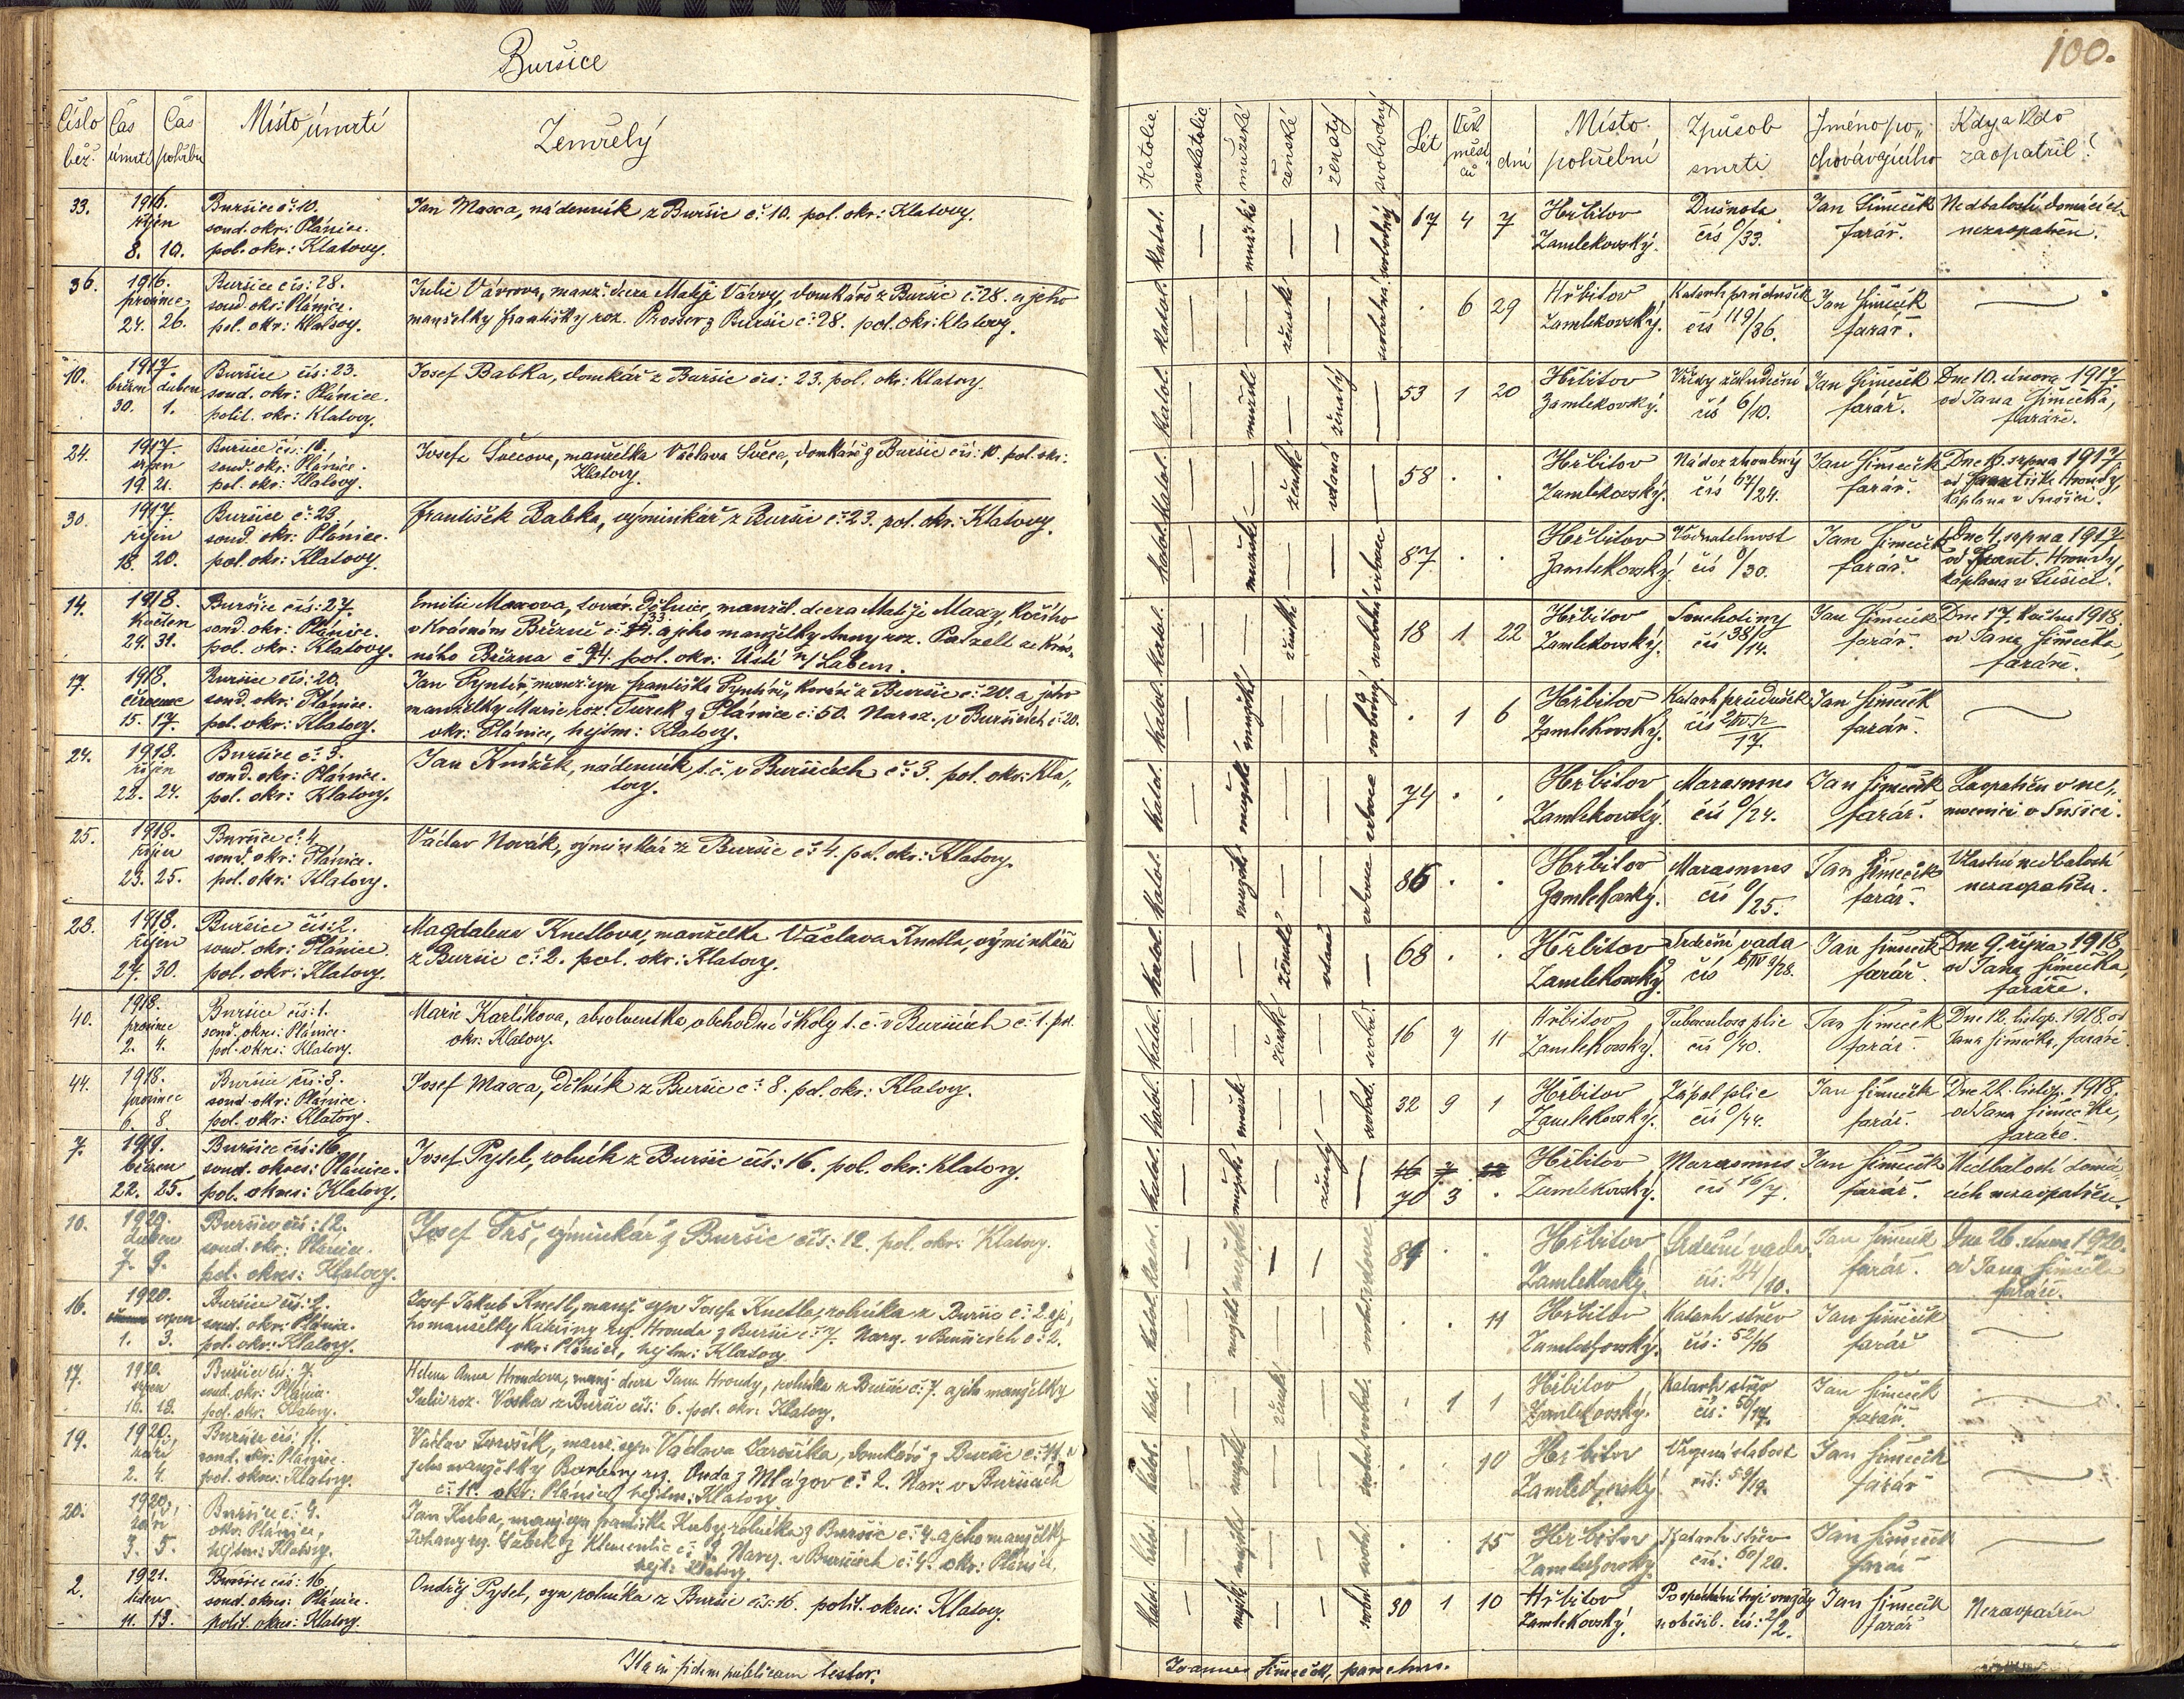 Buršice
100.
Číslo běž.
Čas úmrtí
Čas pohřbu
Místo úmrtí
Zemřelý
Katolic.
nekatolic.
mužské
ženské
ženatý
svobodný
Let
Věk
měsí-
ců
dní
Místo
pohřební
Způsob
smrti
Jméno po-
chovávajícího
Kdy a kdo
zaopatřil?
33. 1916. říjen 8. 10.
Buršice č: 10.
soud. okr: Plánice.
pol. okr: Klatovy.
Jan Maxa, nádenník z Buršic č: 10. pol. okr: Klatovy.
katol. — mužské — — svobodný 67 4 7
Hřbitov
Zamlekovský.
Dušnota
čís 0/33.
Jan Šimeček
farář.
Nedbalostí domácích
nezaopatřen.
36. 1916. prosinec 24. 26.
Buršice čís: 28.
soud. okr: Plánice.
pol. okr: Klatovy.
Julie Vávrova, manž. dcera Matěje Vávry, domkáře z Buršic č: 28. a jeho
manželky Františky roz. Prosser z Buršic č: 28. pol. okr: Klatovy.
katol. — — ženské — svobodná . 6 29
Hřbitov
Zamlekovský.
Katarh průdušek
čís 119/36.
Jan Šimeček
farář.
10. 1917. březen duben 30. 1.
Buršice čís: 23.
soud. okr: Plánice.
polit. okr: Klatovy.
Josef Babka, domkář z Buršic čís: 23. pol. okr: Klatovy.
katol. — mužské — ženatý — 53 1 20
Hřbitov
Zamlekovský.
Vředy žaludeční
čís 6/10.
Jan Šimeček
farář.
Dne 10. února 1917
od Jana Šimečka,
faráře.
24. 1917. srpen 19. 21.
Buršice čís: 10.
soud. okr: Plánice.
pol. okr: Klatovy.
Josefa Švecova, manželka Václava Švece, domkáře z Buršic čís: 10. pol. okr:
Klatovy.
katol. — ženské vdaná — 58 . .
Hřbitov
Zamlekovský.
Nádor zhoubný
čís 67/24.
Jan Šimeček
farář.
srpna 1917
od Františka Hrondy,
kaplana v Sušici.
30. 1917. říjen 18. 20.
Buršice č: 23
soud. okr: Plánice.
pol. okr: Klatovy.
František Babka, výminkář z Buršic č: 23. pol. okr: Klatovy.
katol. — mužské — — vdovec 87 . .
Hřbitov
Zamlekovský.
Vodnatelnost
čís 0/30.
Jan Šimeček
farář.
Dne 4. srpna 1917
od Frant. Hrondy,
kaplana v Sušici.
14. 1918. květen 29. 31.
Buršice čís: 27.
soud. okr: Plánice.
pol. okr: Klatovy.
Emilie Maxova, továr. dělnice, manžel. dcera Matěje Maxy, kočího
v Krásném Březně č: 133. a jeho manželky Anny roz. Patzelt ze Krás-
ného Března č 94. pol. okr: Ústí n/Labem.
katol. — — ženské — svobodná 18 1 22
Hřbitov
Zamlekovský.
Souchotiny
čís 38/14.
Jan Šimeček
farář.
Dne 17. května 1918.
od Jana Šimečka,
faráře.
17. 1918. červenec 15. 17.
Buršice čís: 20.
soud. okr: Plánice.
pol. okr: Klatovy.
manželky Marie roz. Turek z Plánice č: 50. Naroz. v Buršicích č: 20.
okr: Plánice, hejtm: Klatovy.
katol. — mužské — — svobodný . 1 6
Hřbitov
Zamlekovský.
Katarh průdušek
17.
Jan Šimeček
farář.
24. 1918. říjen 22. 24.
Buršice č: 3.
soud. okr: Plánice.
pol. okr: Klatovy.
Jan Knížek, nádenník t. č. v Buršicích č: 3. pol. okr: Kla-
tovy.
katol. — mužské — — vdovec 74 . .
Hřbitov
Zamlekovský.
Marasmus
čís 0/24.
Jan Šimeček
farář.
Zaopatřen v ne-
mocnici v Sušici.
25. 1918. říjen 23. 25.
Buršice č: 4.
soud. okr: Plánice.
pol. okr: Klatovy.
Václav Novák, výminkář z Buršic č: 4. pol. okr: Klatovy.
katol. — mužské — — vdovec 86 . .
Hřbitov
Zamlekovský.
Marasmus
čís 0/25.
Jan Šimeček
farář.
Vlastní nedbalostí
nezaopatřen.
28. 1918. říjen 27. 30.
Buršice čís: 2.
soud. okr: Plánice.
pol. okr: Klatovy.
Magdalena Knetlova, manželka Václava Knetla, výminkáře
z Buršic č: 2. pol. okr: Klatovy.
katol. — — ženské vdaná — 68 . .
Hřbitov
Zamlekovský.
Srdeční vada
Jan Šimeček
farář.
Dne 9. října 1918,
od Jana Šimečka,
faráře.
40. 1918. prosinec 2. 4.
Buršice čís: 1.
soud. okres: Plánice.
pol. okres: Klatovy.
Marie Karlíkova, absolventka obchodní školy t. č. v Buršicích č: 1. pol.
okr: Klatovy.
katol. — — ženské — svobod. 16 7 11
Hřbitov
Zamlekovský.
Tuberculosa plic
čís 0/40.
Jan Šimeček
farář.
Dne 12. listop. 1918. od
Jana Šimečka, faráře.
44. 1918. prosinec 6. 8.
Buršice čís: 8.
soud. okr: Plánice.
pol. okr: Klatovy.
Josef Maxa, dělník z Buršic č: 8. pol. okr: Klatovy.
katol. — mužské — — svobod. 32 9 1
Hřbitov
Zamlekovský.
Zápal plic
čís 0/44.
Jan Šimeček
farář.
Dne 22. listop. 1918.
od Jana Šimečka,
faráře.
7. 1919. březen 22. 25.
Buršice čís: 16.
soud. okres: Plánice.
pol. okres: Klatovy.
Josef Pytel, rolník z Buršic čís: 16. pol. okr: Klatovy.
katol. — mužské — ženatý — 70 3 .
Hřbitov
Zamlekovský.
Marasmus
čís 16/7.
Jan Šimeček
farář.
Nedbalostí domá-
cích nezaopatřen.
10. 1920. duben 7. 9.
Buršice čís: 12.
soud. okr: Plánice.
pol. okres: Klatovy.
Josef Trš, výminkář z Buršic čís: 12. pol. okr: Klatovy.
katol. — mužské — — vdovec 84 . .
Hřbitov
Zamlekovský.
Srdeční vada
čís: 24/10.
Jan Šimeček
farář.
Dne 26. února 1920.
od Jana Šimečka
faráře.
16. 1920. srpen 1. 3.
Buršice čís: 2.
soud. okr: Plánice.
pol. okr: Klatovy.
Josef Jakub Knetl, manž. syn Josefa Knetla, rolníka z Buršic č: 2. a je-
ho manželky Kateřiny roz. Hrouda z Buršic č: 7. Naroz. v Buršicích č: 2.
okr: Plánice, hejtm: Klatovy.
katol. — mužské — — . . 11
Hřbitov
Zamlekovský.
Katarh střev
čís: 52/16
Jan Šimeček
farář
17. 1920. srpen 16. 18.
Buršice čís: 7.
soud. okr: Plánice.
pol. okr: Klatovy.
Helena Anna Hroudova, manž. dcera Jana Hroudy, rolníka z Buršic č: 7. a jeho manželky
Julie roz. Voska z Buršic čís: 6. pol. okr: Klatovy.
katol. — — ženské — svobod. . 1 1
Hřbitov
Zamlekovský.
Katarh střev
Jan Šimeček
farář.
19. 1920. září 2. 4.
Buršice čís: 11.
soud. okr: Plánice.
pol. okres: Klatovy.
jeho manželky Barbory roz. Onda z Mlázov č: 2. Nar. v Buršicích
č: 11. okr: Plánice, hejtm: Klatovy.
katol. — mužské — — svobod. . . 10
Hřbitov
Zamlekovský.
Vrozená slabost
čís: 59/19.
Jan Šimeček
farář
20. 1920. září 3. 5.
Buršice č: 4.
okr: Plánice,
hejtm: Klatovy.
Jan Kuba, manž. syn Františka Kuby, rolníka z Buršic č: 4. a jeho manželky
Naroz. v Buršicích č: 4. okr: Plánice,
hejt: Klatovy.
katol. mužské — — svobod. . . 15
Hřbitov
Zamlekovský.
Katarh střev
čís: 60/20.
Jan Šimeček
farář
2. 1921. leden 11. 13.
Buršice čís: 16
soud. okres: Plánice.
polit. okres: Klatovy.
Ondřej Pytel, syn rolníka z Buršic čís: 16. polit. okres: Klatovy.
katol. — mužské — — svobod. 30 1 10
Hřbitov
Zamlekovský.
čís: 2/2.
Jan Šimeček
farář
Nezaopatřen
Ita in fidem publicam testor:
Joannes Šimeček, parochus.